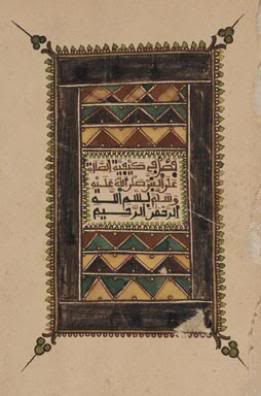 فصل في كيفية الصلاة
على النبي صلى الله عليه
وسلم بسم الله
الرحمن الرحيم